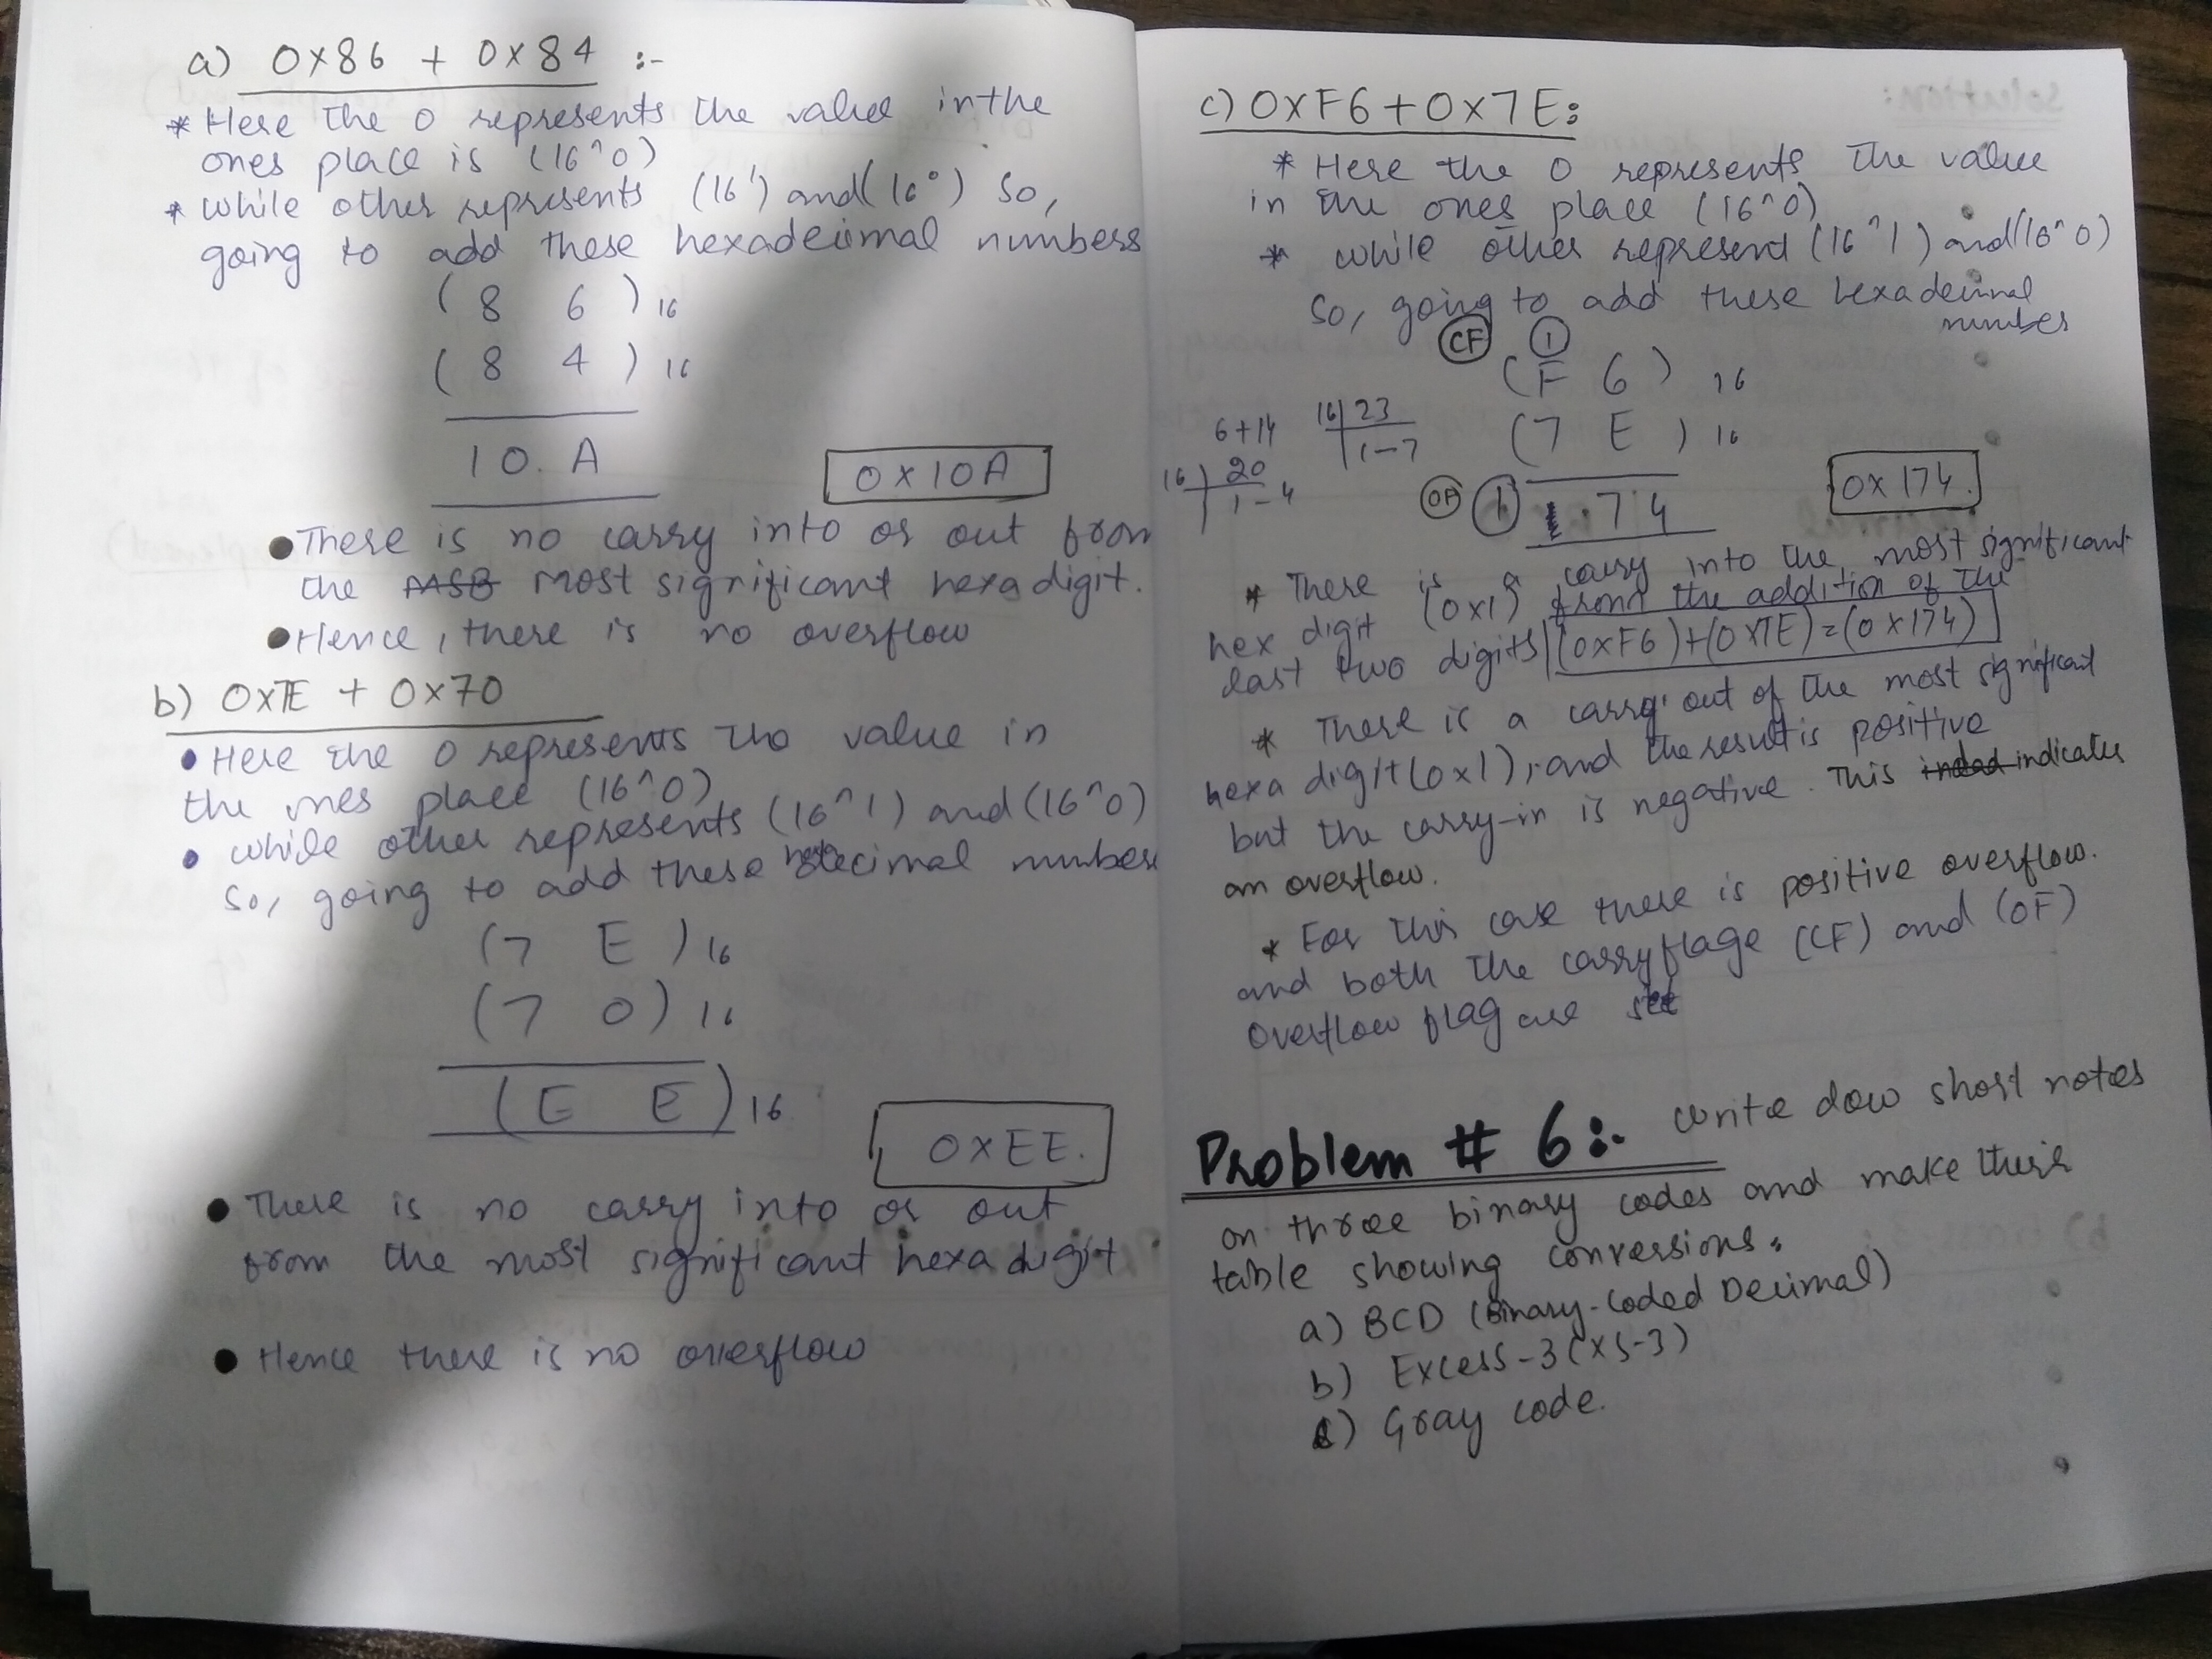 a) 0x86 + 0x84 :-
* Here the 0 represents the value in the
ones place is (16^0)
* while other represents (16') and (16°) So,
going to add these hexadecimal numbers
( 8 6 ) 16
( 8 4 ) 16
10. A
0x10A
• There is no carry into or out from
the MSB most significant hexa digit.
• Hence, there is no overflow
b) 0x7E + 0x70
• Here the 0 represents tho value in
the ones place (16^0)
• while other represents (16^1) and (16^0)
So, going to add these decimal number
(7 E )16
(7 0) 16
(E E)16
0xEE.
• There is no carry into or out
from the most significant hexa digit.
• Hence there is no overflow
c) 0xF6+0x7E:
* Here the 0 represents the value
in the ones place (16^0)
* while other represend (16^1) and (16^0)
So, going to add these hexadecimal
number
CF 1
(F 6) 16
(7 E ) 16
6+14
16 20
1-4
16 23
1-7
OF 1 1.74
0x174.
* There is a carry into the most significant
hex digit (0x1) from the addition of the
last two digits (0xF6)+(0x7E)=(0x174)
* There is a carry out of the most significant
hexa digit (0x1), and the result is positive
but the carry-in is negative. This indicates
an overflow.
* For this case there is positive overflow.
and both the carryflage (CF) and (OF)
overflow flag are set
Problem # 6:- write dow short notes
on three binary codes and make their
table showing conversions.
a) BCD (Binary-Coded Decimal)
b) Excess-3 (XS-3)
c) Gray code.